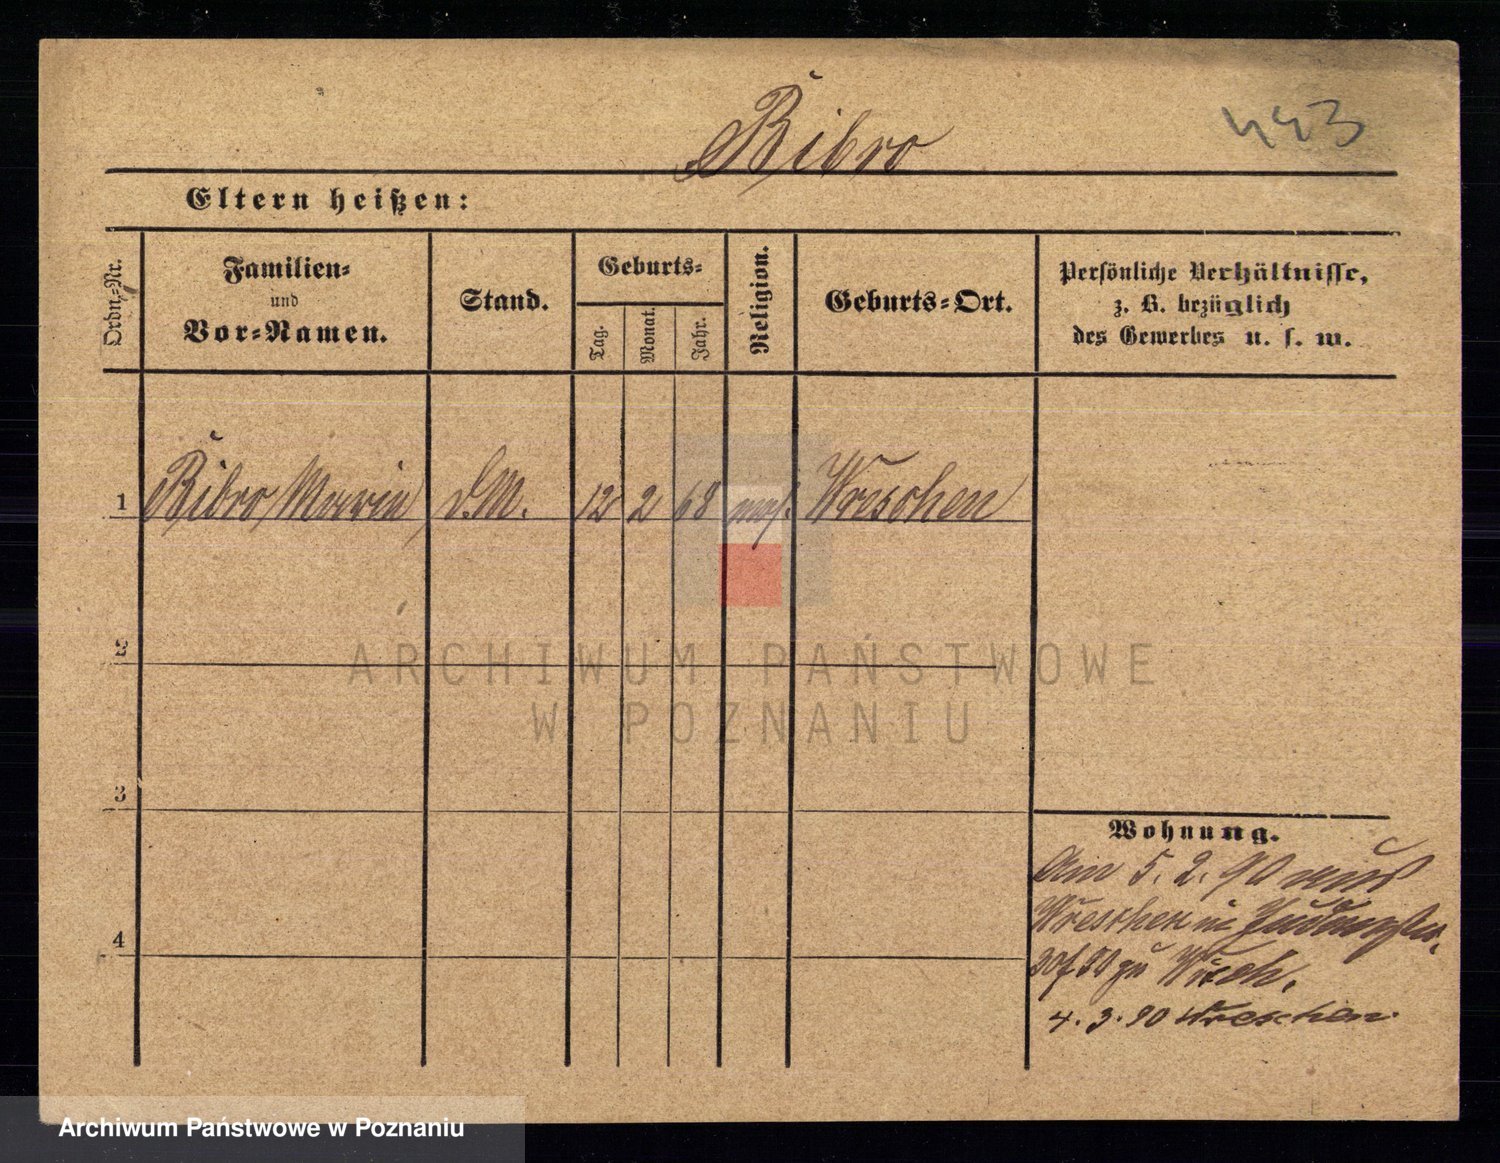 Bibro
443
Eltern heißen:
Ordn.-Nr.
Familien-
und
Vor-Namen.
Stand.
Geburts-
Tag.
Monat.
Jahr.
Religion.
Geburts-Ort.
Persönliche Verhältnisse,
z. B. bezüglich
des Gewerbes u. s. w.
1 Bibro Marie D.M. 12 2 68 mos. Wreschen
2
3
4
Wohnung.
Am 5. 2. 90 aus
Wreschen in
zu Wrech.
4. 3. 90 Wreschen.
ARCHIWUM PAŃSTWOWE
W POZNANIU
Archiwum Państwowe w Poznaniu